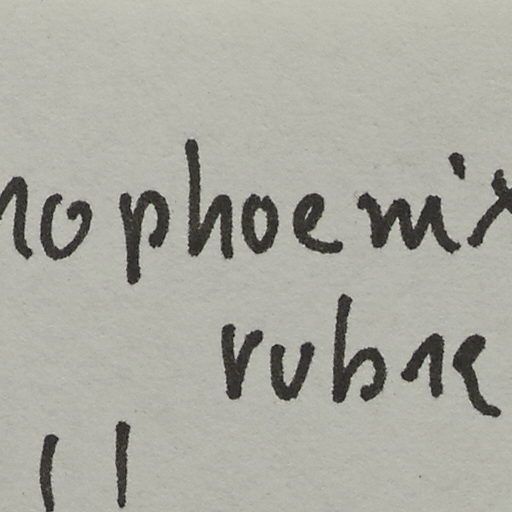 nophoenix
rubra